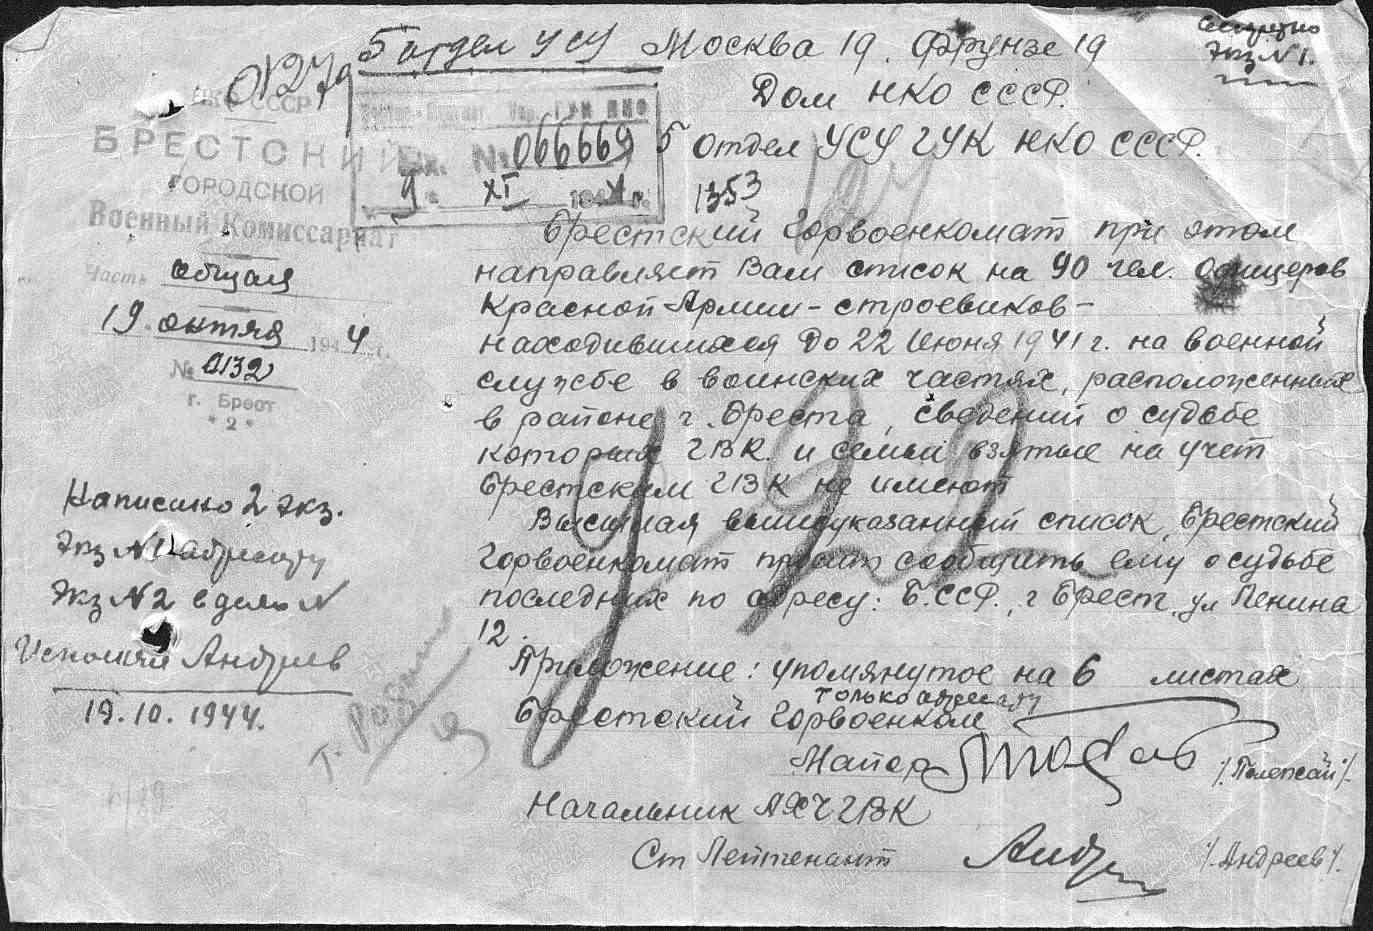 Секретно
Экз N 1.
5 отдел УСУ Москва 19. Фрунзе 19
Дом НКО СССР.
5 отдел УСУ ГУК НКО СССР.
1353
НКО СССР
БРЕСТСКИЙ
ГОРОДСКОЙ
Военный Комиссариат
Часть общая
19 октяб 1944 г.
№ 0132
г. Брест
* 2 *
Вх. № 066669
9 XI 1944 г.
Брестский Горвоенкомат при этом
направляет Вам список на 90 чел. офицеров
Красной Армии - строевиков -
находившихся до 22 Июня 1941 г. на военной
службе в воинских частях, расположенных
в районе г. Бреста, сведений о судьбе
которых ГВК. и семьи взятые на учет
Брестским ГВК не имеют
Высылая вышеуказанный список, Брестский
Горвоенкомат просит сообщить ему о судьбе
последних по адресу: Б.ССР., г Брест, ул Ленина
12.
Приложение: упомянутое на 6 листах
только адресату
Брестский Горвоенком
Майор /Полежай/.
Начальник АХЧ ГВК
Ст Лейтенант /Андреев/.
Написано 2 экз.
Экз N 1 адресату
Экз N 2 в дело N
Исполнил Андреев
19.10.1944.